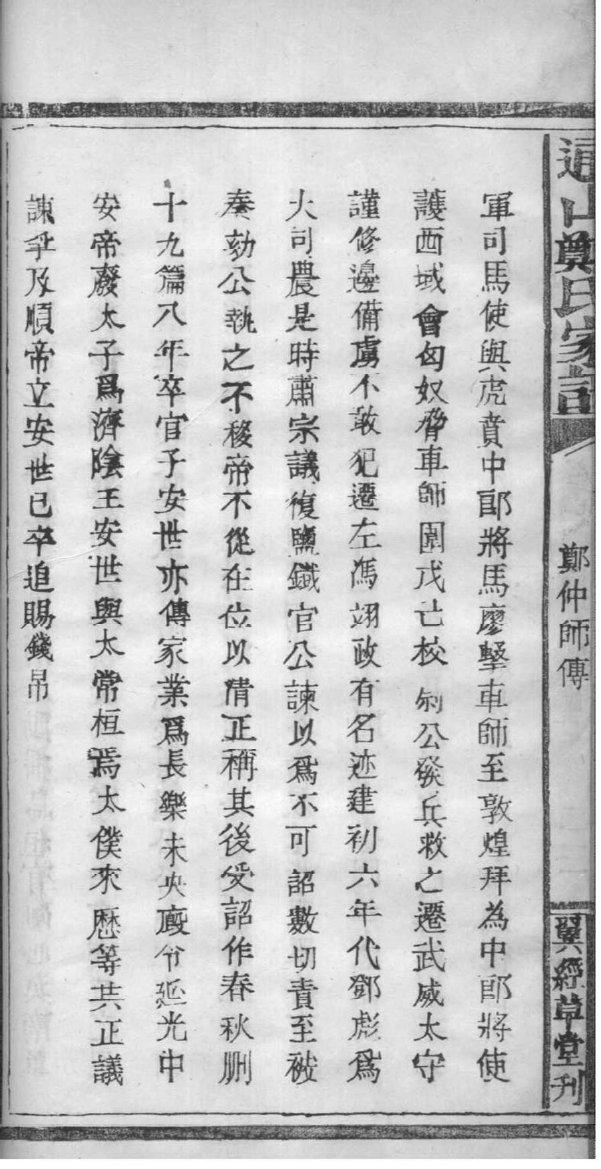 通山鄭氏家譜
鄭仲師傳
翼經草堂刊
軍司馬使與虎賁中郎將馬廖擊車師至敦煌拜為中郎將使
護西域會匈奴脅車師圍戊己校尉公發兵救之遷武威太守
謹修邊備虜不敢犯遷左馮翊政有名迹建初六年代鄧彪爲
大司農是時肅宗議復鹽鐵官公諫以爲不可詔數切責至被
奏劾公執之不移帝不從在位以清正稱其後受詔作春秋刪
十九篇八年卒官子安世亦傳家業爲長樂未央廄令延光中
安帝廢太子爲濟陰王安世與太常桓焉太僕來歷等共正議
諫爭及順帝立安世已卒追賜錢帛